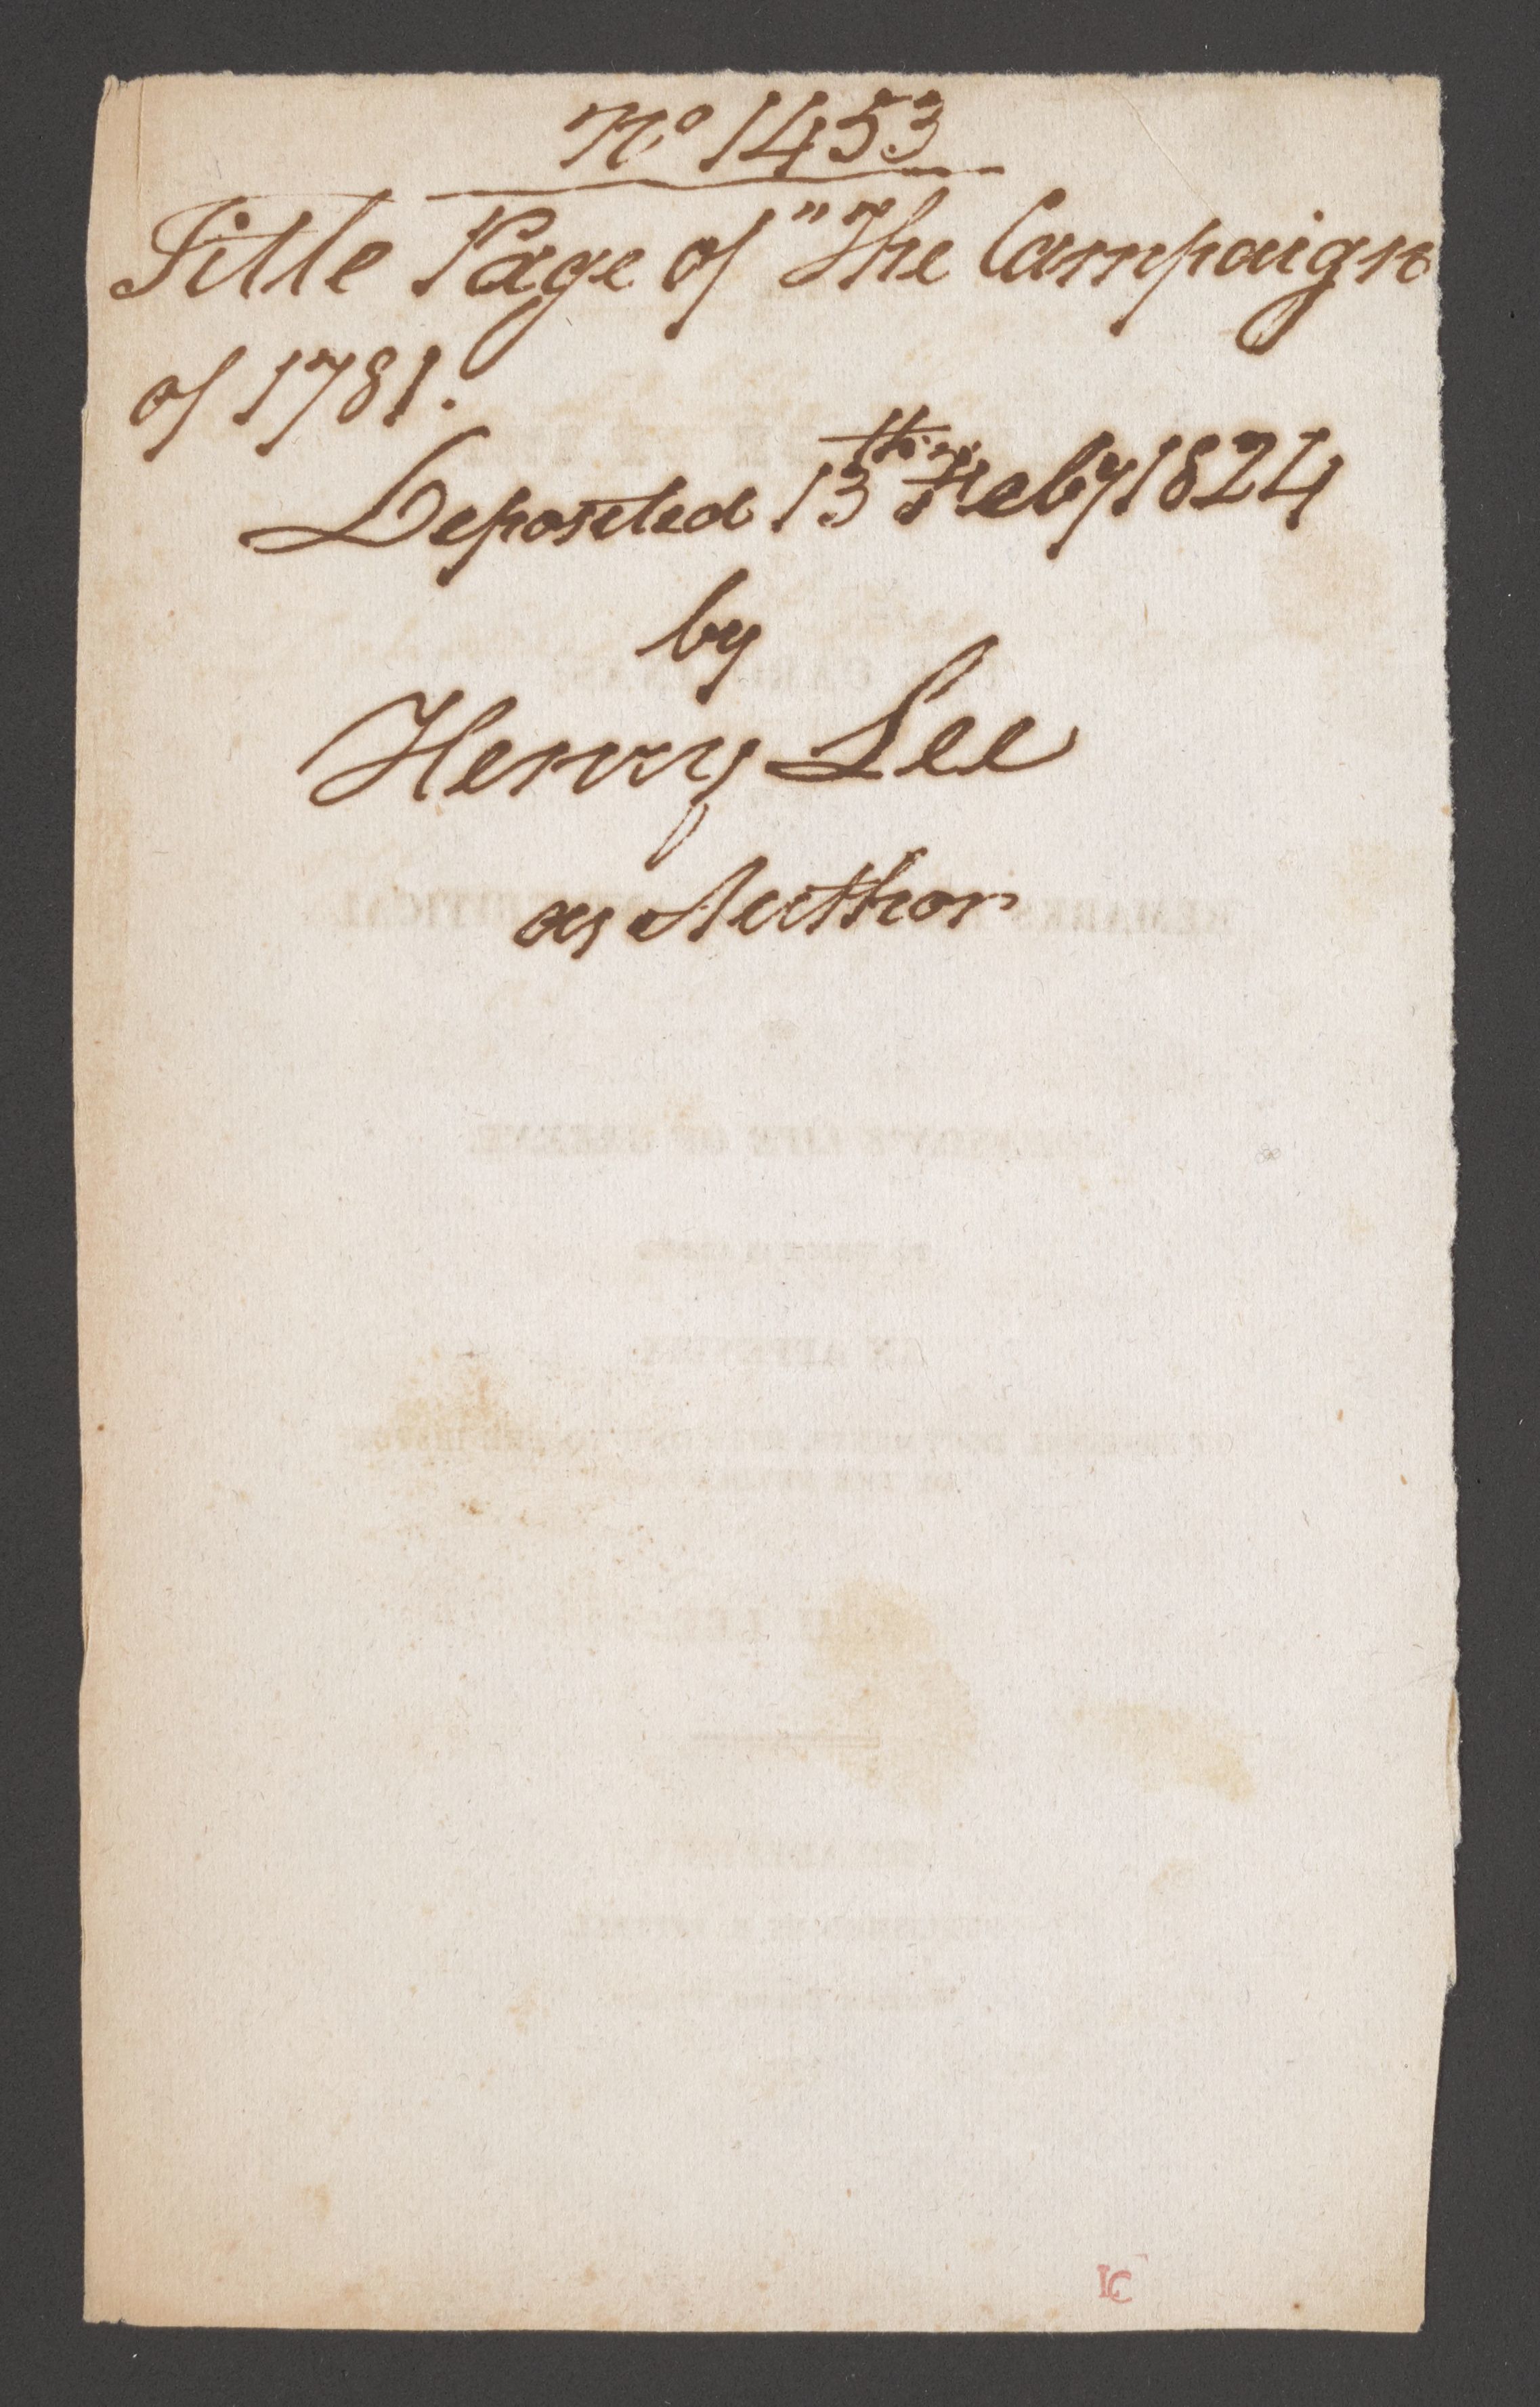 No 1453
Title Page of "The Campaign
of 1781.
Deposited 13th Feby 1824
by
Henry Lee
as Author
LC